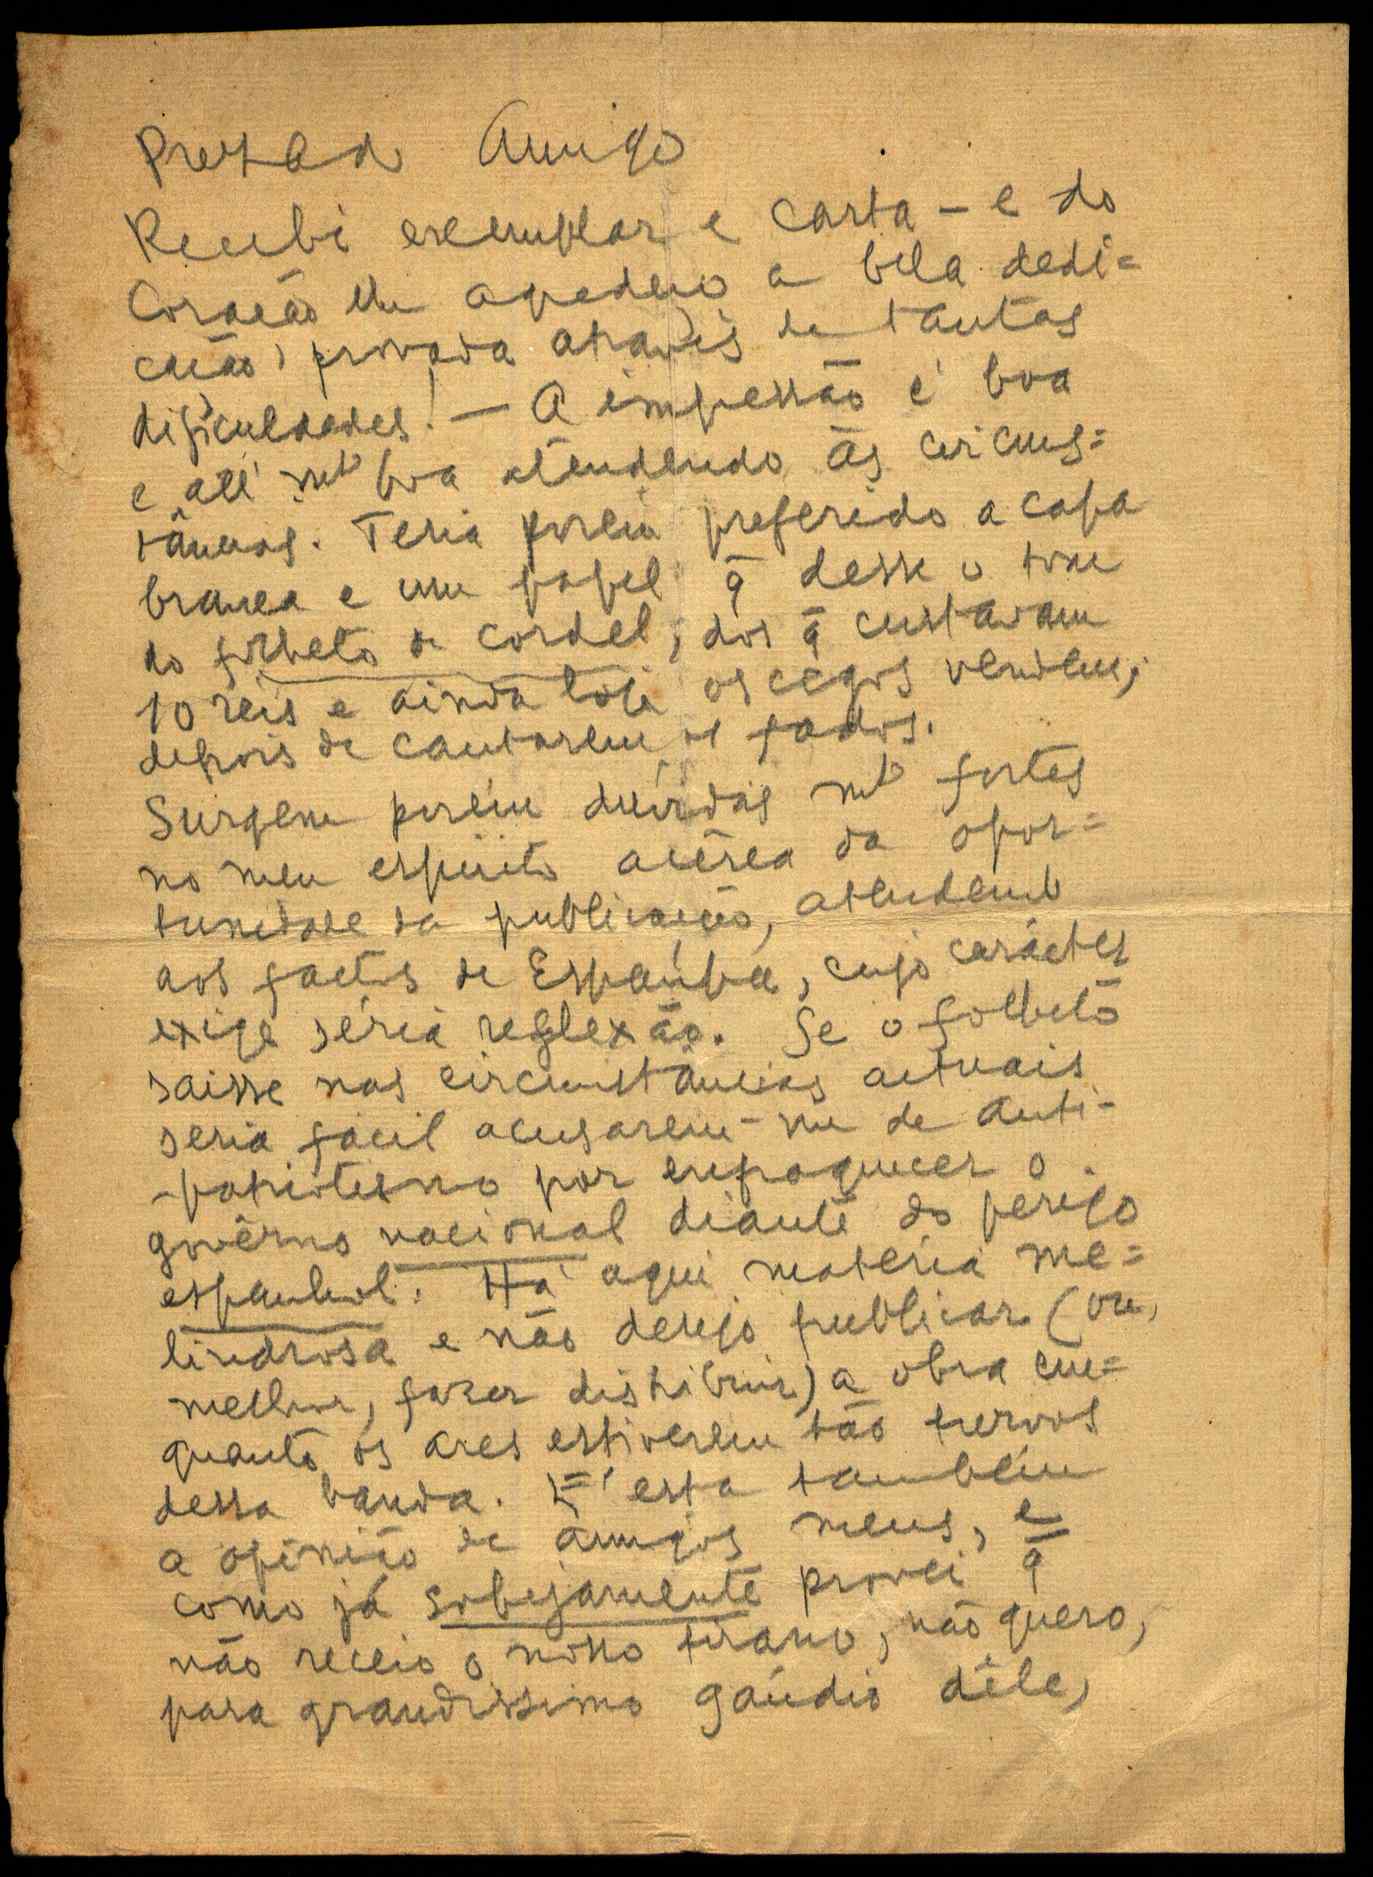 Prezado Amigo
Recebi exemplar e carta – e do
Coração lhe agradeço a bela dedi=
cação, provada através de tantas
dificuldades! — A impressão é boa
e até mto boa atendendo às circuns=
tâncias. Teria porém preferido a capa
branca e um papel q̃ desse o tom
do folheto de cordel, dos q̃ custavam
10 réis e ainda hoje os cegos vendem,
depois de cantarem os fados.
Surgem porém dúvidas mto fortes
no meu espírito acêrca da opor=
tunidade da publicação, atendendo
aos factos de Espanha, cujo carácter
exige séria reflexão. Se o folheto
saisse nas circunstâncias actuais
seria fácil acusarem-me de anti-
-patriotismo por enfraquecer o
govêrno nacional diante do perigo
espanhol. Há aqui matéria me=
lindrosa e não desejo publicar (ou,
melhor, fazer distribuir) a obra em=
quanto os ares estiverem tão turvos
dessa banda. É esta também
a opinião de amigos meus, e
como já sobejamente provei q̃
não receio o nosso tirano, não quero,
para grandíssimo gáudio dêle,